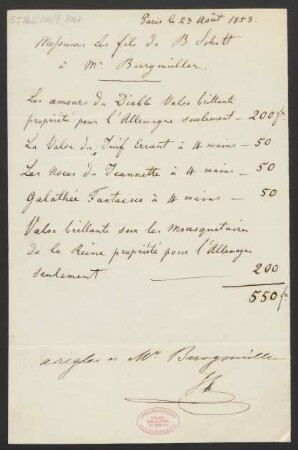 Paris le 23 Août 1853.
Messieurs Les fils de B Schott
à Mr Burgmüller.
Les amours du Diable Valse brillante
propriété pour l'Allemagne seulement — 200 fr
La Valse du Juif Errant à 4 mains — 50
Les Noces de Jeannette à 4 mains — 50
Galathée Fantaisie à 4 mains — 50
Valse brillante sur les Mousquetaires
de la Reine propriété pour l'Allemagne
seulement — 200
550 fr
a régler à Mr Burgmüller